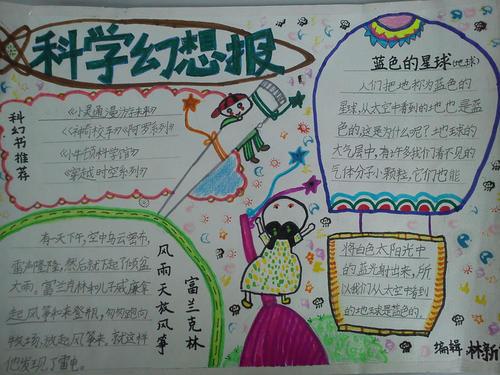 科学幻想报
科幻书推荐
《小灵通漫游未来》
《小牛顿科学馆》
《穿越时空系列》
风雨天放风筝
富兰克林
有一天下午，空中乌云密布，
雷声隆隆，然后就下起了倾盆
大雨。富兰克林和儿子威廉拿
起风筝和来登瓶，匆匆跑向
牧场，放起风筝来，就这样
他发现了雷电。
蓝色的星球(地球)
人们把地球称为蓝色的
星球，从太空中看到的地也是蓝
色的，这是为什么呢？地球的
大气层中，有许多我们看不见的
气体分子小颗粒，它们也能
将白色太阳光中
的蓝光射出来，所
以我们从太空中看到
的地球是蓝色的。
编辑 林新